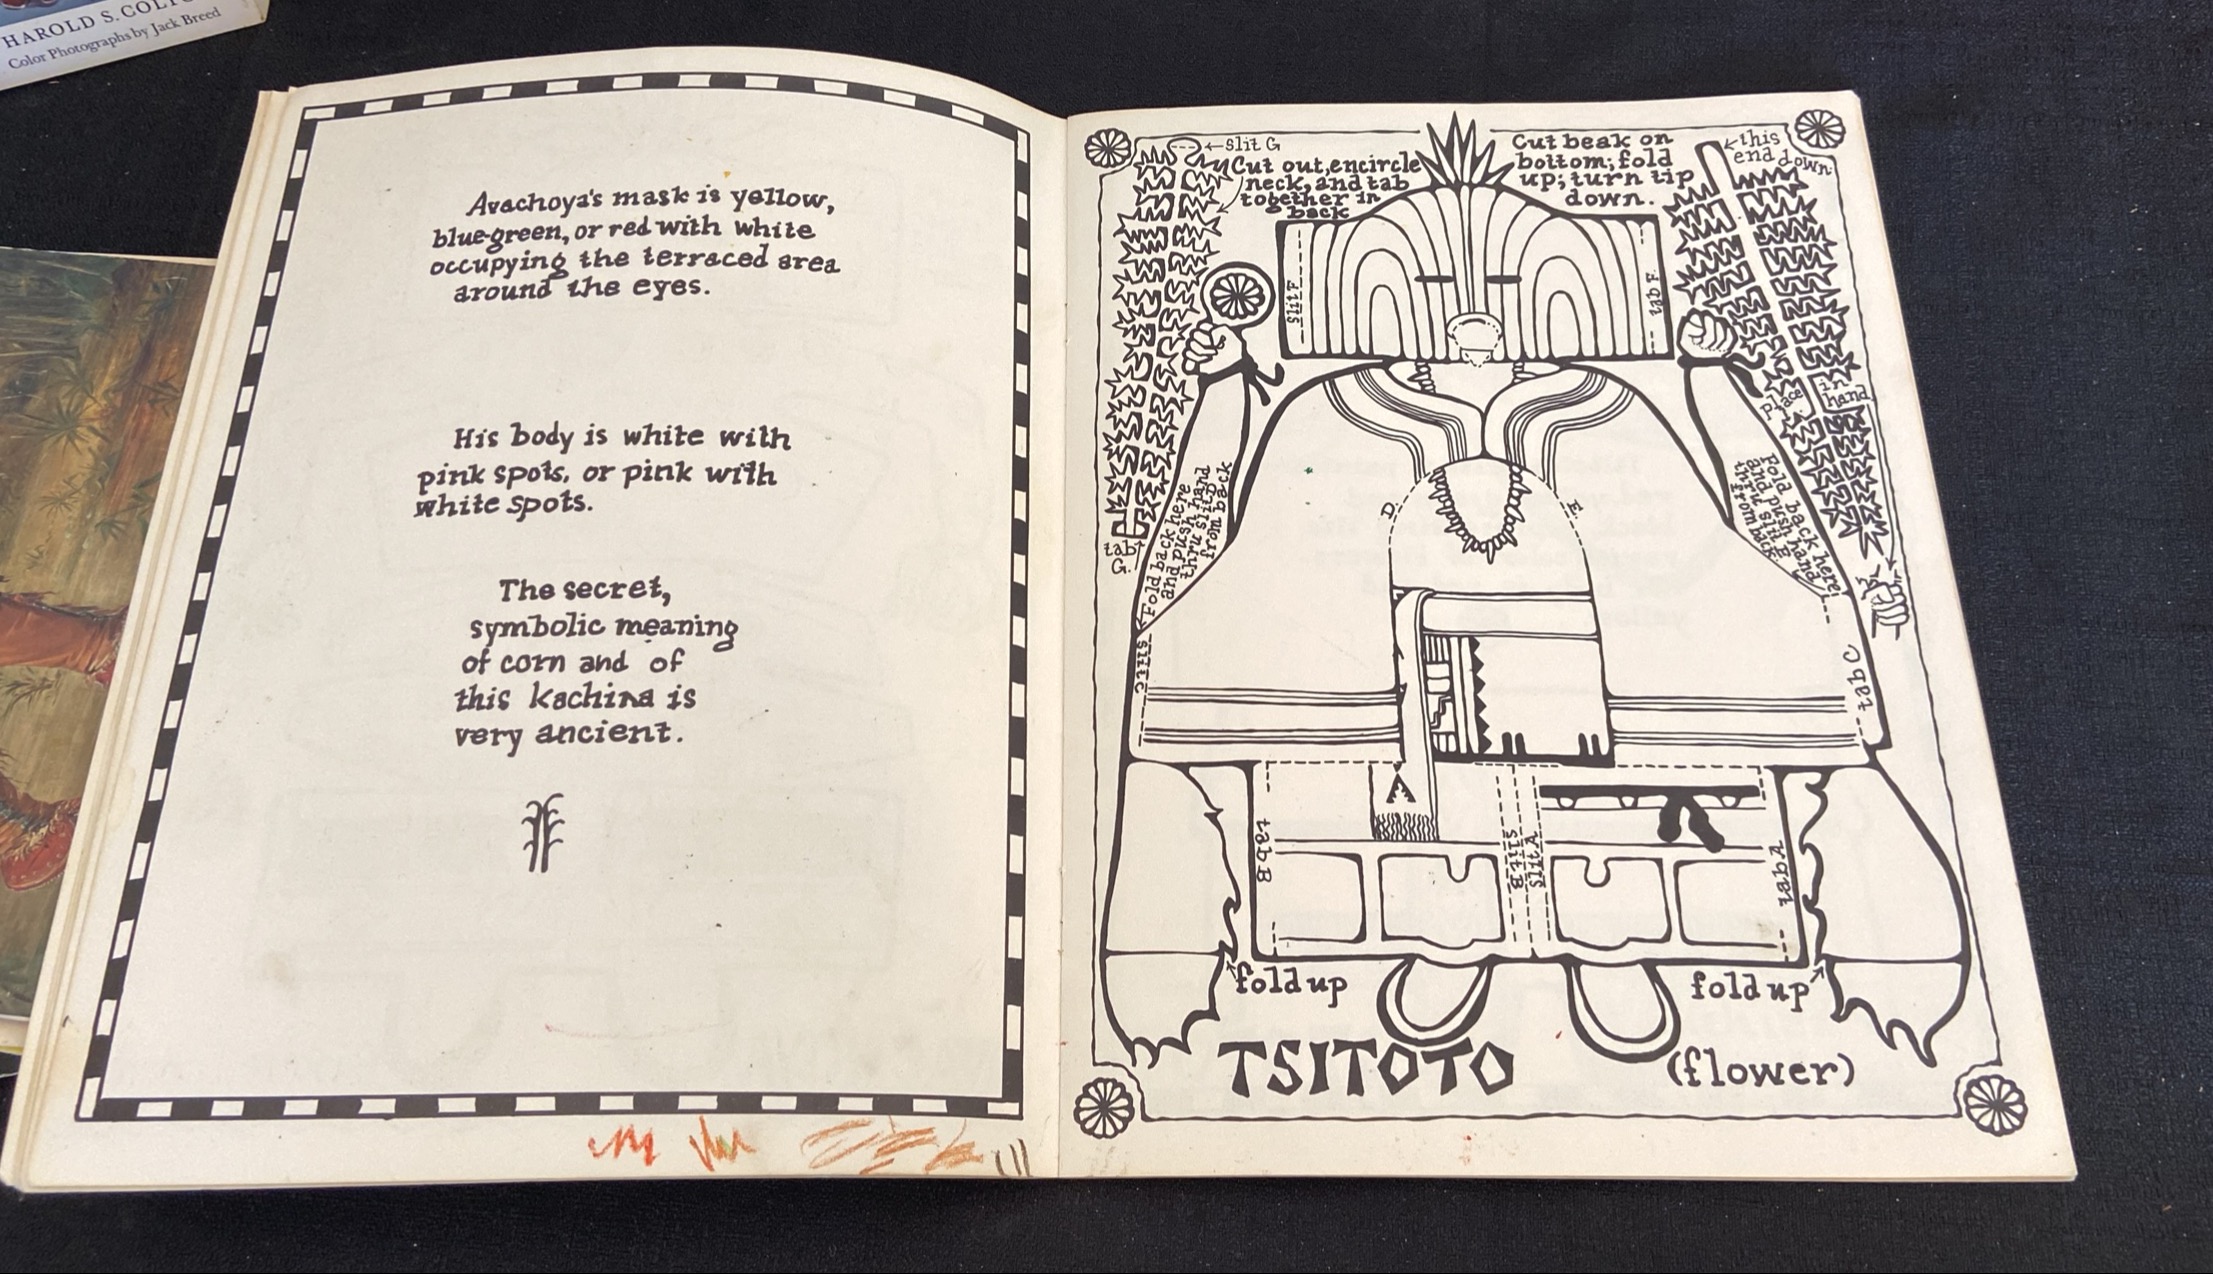 HAROLD S. COLT
Color Photographs by Jack Breed
Avachoya's mask is yellow,
blue-green, or red with white
occupying the terraced area
around the eyes.
His body is white with
pink spots, or pink with
white spots.
The secret,
symbolic meaning
of corn and of
this kachina is
very ancient.
←slit G
Cut out, encircle
neck, and tab
together in
back
Cut beak on
bottom; fold
up; turn tip
down.
this
end down.
slit F
tab F
place
in
hand
D
E
Fold back here
and push hand
thru slit D
from back
Fold back here
and push hand
thru slit E
from back
tab
G.
slit C
tab C
tab B
slit B
slit A
tab A
fold up
fold up
TSITOTO
(flower)